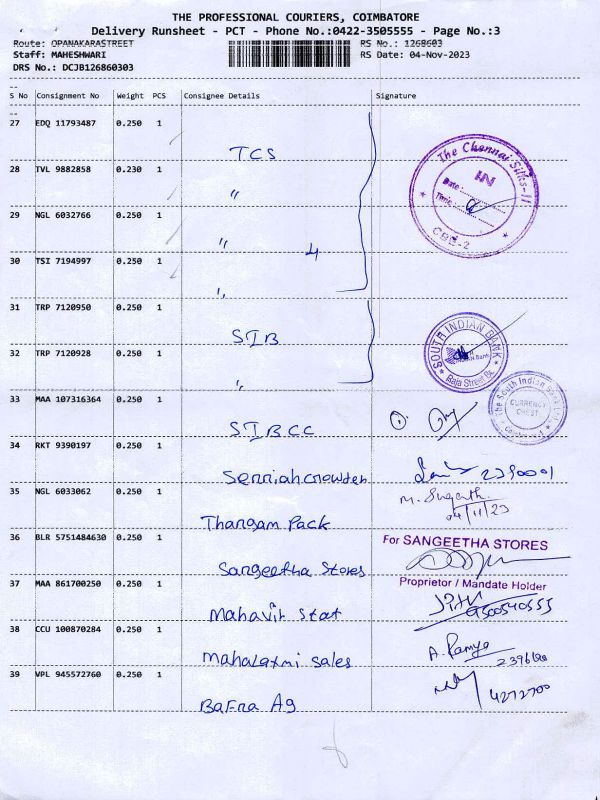 THE PROFESSIONAL COURIERS, COIMBATORE
Delivery Runsheet - PCT - Phone No.:0422-3505555 - Page No.:3
Route: OPANAKARASTREET RS No.: 1268603
Staff: MAHESHWARI RS Date: 04-Nov-2023
DRS No.: DCJB126860303
S No Consignment No Weight PCS Consignee Details Signature
27 EDQ 11793487 0.250 1
TCS
28 TVL 9882858 0.230 1
"
29 NGL 6032766 0.250 1
" 4
30 TSI 7194997 0.250 1
"
The Chennai Silks-II
IN
Date:
Time:
CBE-2
31 TRP 7120950 0.250 1
SIB
32 TRP 7120928 0.250 1
"
SOUTH INDIAN BANK
33 MAA 107316364 0.250 1
SIBCC
The South Indian Bank Ltd
CURRENCY
CHEST
34 RKT 9390197 0.250 1
35 NGL 6033062 0.250 1
Thangam Pack
04/11/23
36 BLR 5751484630 0.250 1
Sangeetha Stores
For SANGEETHA STORES
Proprietor / Mandate Holder
37 MAA 861700250 0.250 1
Mahavir Stat
38 CCU 100870284 0.250 1
Mahalaxmi Sales
A. Ramya
39 VPL 945572760 0.250 1
Bafna Ag
4272700